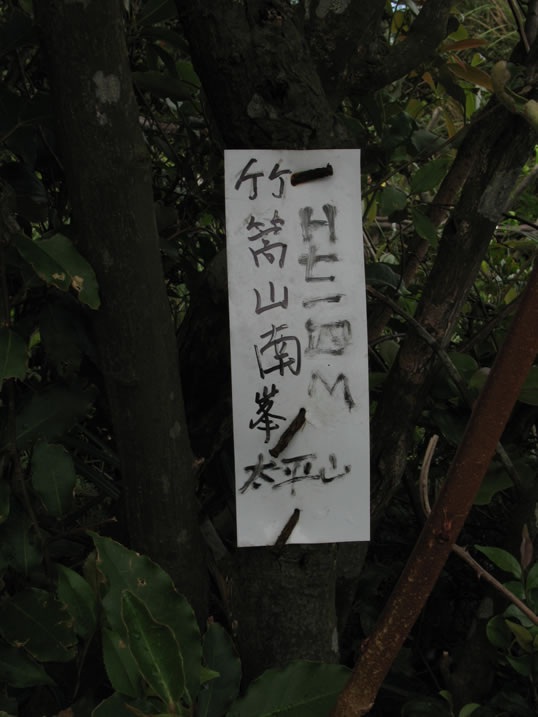 竹篙山南峯
H七一四M
太平山